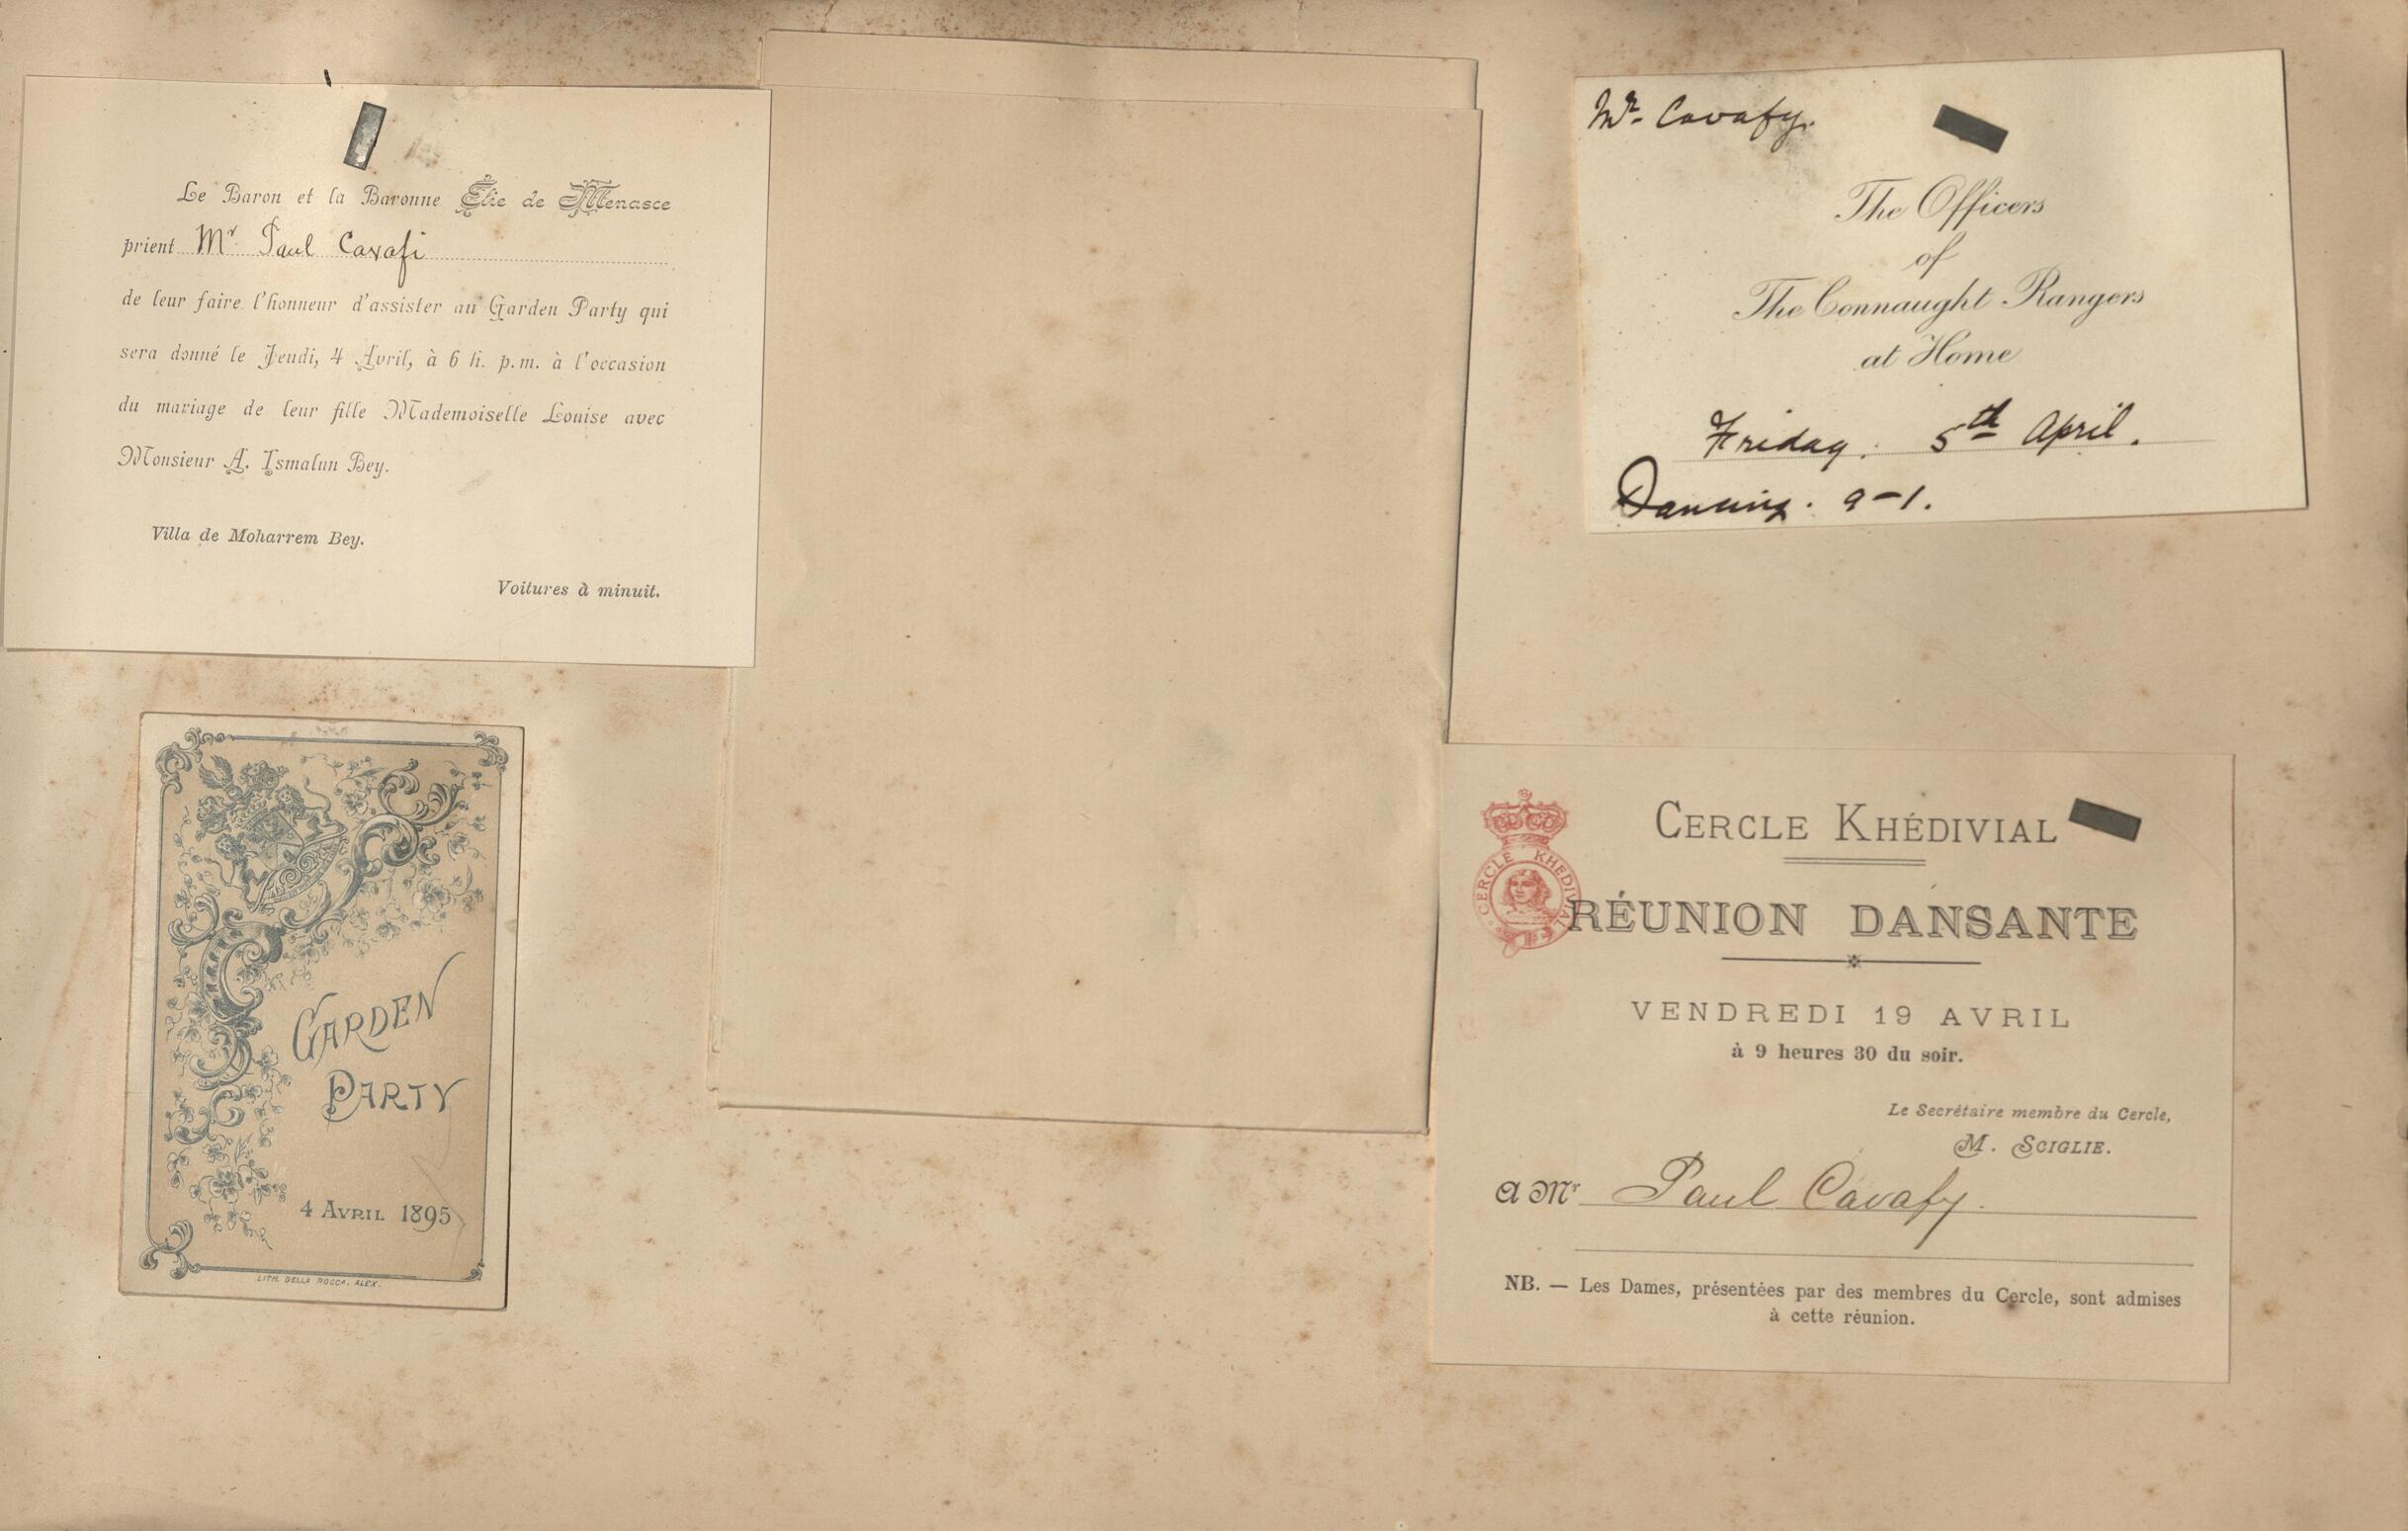 Le Baron et la Baronne Élie de Menasce
prient Mr Paul Cavafi
de leur faire l'honneur d'assister au Garden Party qui
sera donné le Jeudi, 4 Avril, à 6 h. p.m. à l'occasion
du mariage de leur fille Mademoiselle Louise avec
Monsieur A. Ismalun Bey.
Villa de Moharrem Bey.
Voitures à minuit.
GARDEN
PARTY
4 AVRIL 1895
LITH. DELLA ROCCA. ALEX.
Mr. Cavafy.
The Officers
of
The Connaught Rangers
at Home
Friday. 5th April.
Dancing. 9-1.
CERCLE KHÉDIVIAL
CERCLE KHEDIVIAL
RÉUNION DANSANTE
VENDREDI 19 AVRIL
à 9 heures 30 du soir.
Le Secrétaire membre du Cercle,
M. SCIGLIE.
A Mr Paul Cavafy.
NB. — Les Dames, présentées par des membres du Cercle, sont admises
à cette réunion.